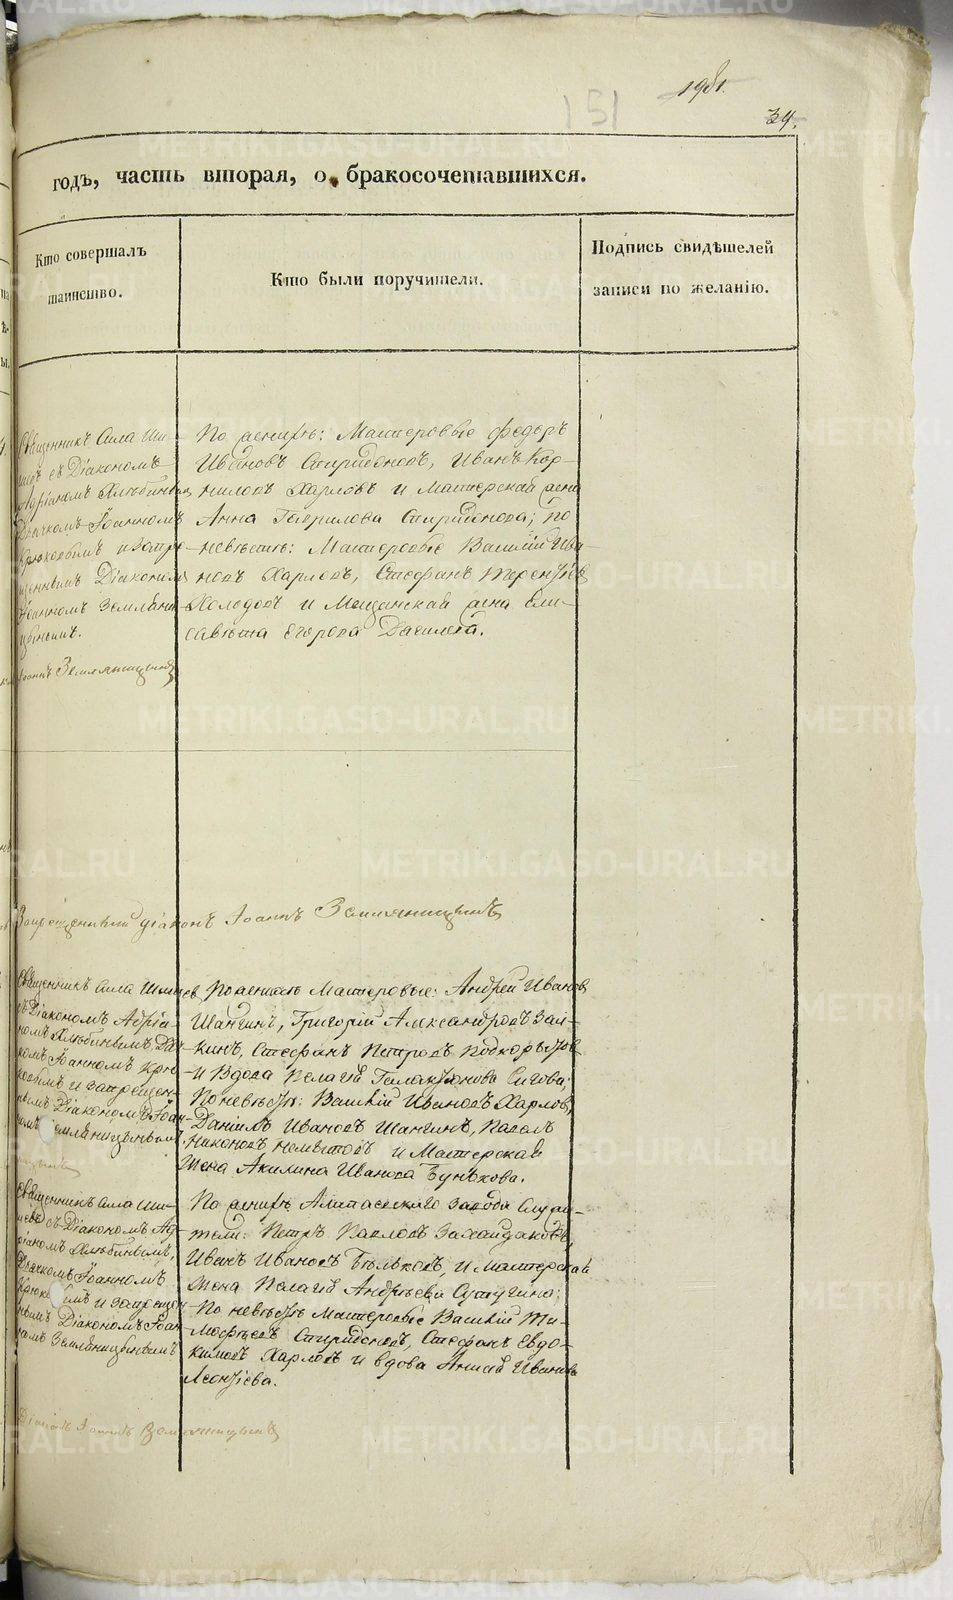 198.
151
34.
годъ, часть вторая, о бракосочетавшихся.
Кто совершалъ
таинство.
Кто были поручители.
Подпись свидѣтелей
записи по желанію.
Священникъ Сила Ши-
съ Діакономъ
Адріаномъ Хлѣбинымъ
Дьячкомъ Іоанномъ
Крюковымъ и запре-
щеннымъ Діакономъ
Іоанномъ Земляни-
цынымъ.
Іоаннъ Земляницынъ
По женихѣ: Мастеровые Федоръ
Ивановъ Спиридоновъ, Иванъ Кор-
ниловъ Харловъ и Мастерская жена
Анна Гаврилова Спиридонова; по
невѣстѣ: Мастеровые Василій Ива-
новъ Харловъ, Стефанъ Терентіевъ
Холодовъ и Мещанская жена Ели-
савета Егорова
Запрещенный діаконъ Іоаннъ Земляницынъ
Священникъ Сила
съ Діакономъ Адріа-
номъ Хлѣбинымъ, Дьяч-
комъ Іоанномъ Крю-
ковымъ и запрещен-
нымъ Діакономъ Іоан-
номъ Земляницынымъ
По женихѣ Мастеровые: Андрей Ивановъ
Шангинъ, Григорій Александровъ Зал-
кинъ, Стефанъ Петровъ Подкорытовъ
и Вдова Пелагія Галактіонова Сигова;
По невѣстѣ: Василій Ивановъ Харловъ,
Даніилъ Ивановъ Шангинъ, Павелъ
Никоновъ и Мастерская
жена Акилина Иванова Бунькова.
Священникъ Сила Ши-
съ Діакономъ Ад-
ріаномъ Хлѣбинымъ,
Дьячкомъ Іоанномъ
Крюковымъ и запрещен-
нымъ Діакономъ Іоан-
номъ Земляницынымъ
По женихѣ Алапаевскаго завода Служи-
тели: Петръ Павловъ
Иванъ Ивановъ Бѣльковъ, и Мастерская
жена Пелагія Андреева Сутягина;
По невѣстѣ Мастеровые Василій Ти-
мофѣевъ Спиридоновъ, Стефанъ Евдо-
кимовъ Харловъ и вдова Анисія Иванова
Леонтіева.
Діаконъ Іоаннъ Земляницынъ
METRIKI.GASO-URAL.RU